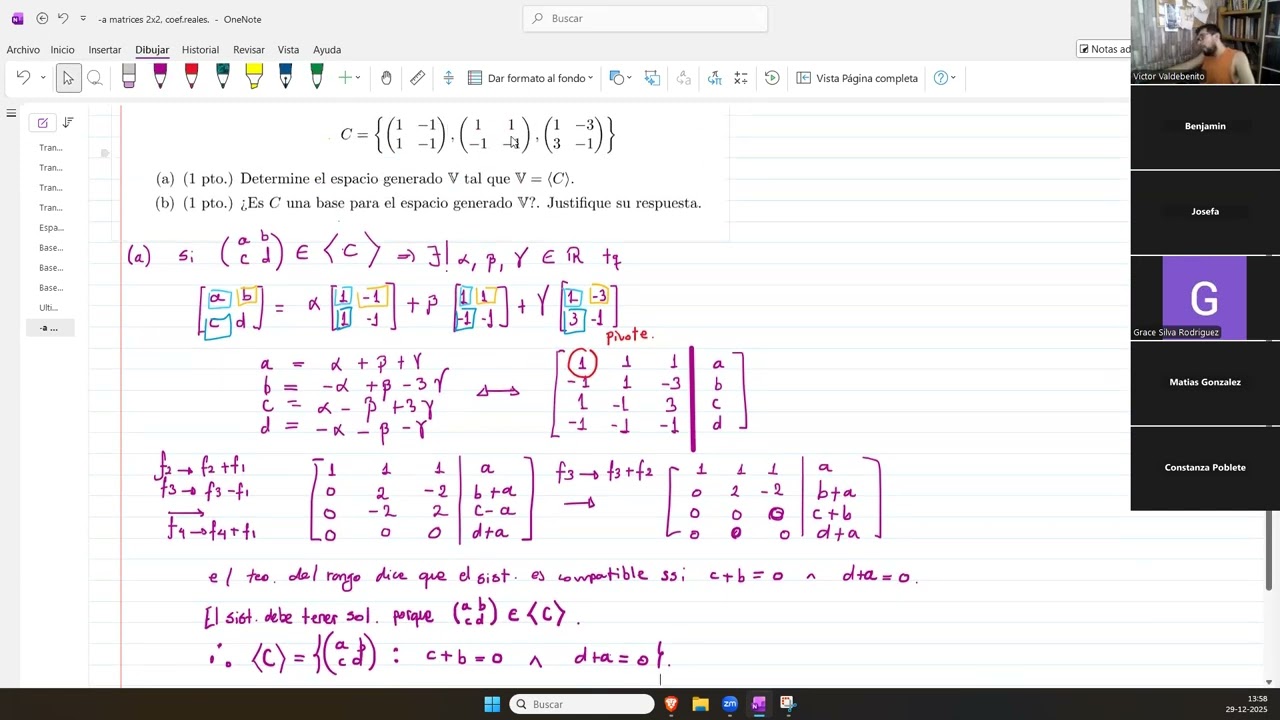 -a matrices 2x2, coef.reales. - OneNote
Buscar
Archivo Inicio Insertar Dibujar Historial Revisar Vista Ayuda
Notas ad
Dar formato al fondo
Vista Página completa
Victor Valdebenito
Benjamin
Josefa
G
Grace Silva Rodríguez
Matias Gonzalez
Constanza Poblete
Tran...
Tran...
Tran...
Tran...
Espa...
Base...
Base...
Base...
Ulti...
-a ...
C = { ( 1 −1 ; 1 −1 ) , ( 1 1 ; −1 −1 ) , ( 1 −3 ; 3 −1 ) }
(a) (1 pto.) Determine el espacio generado 𝕍 tal que 𝕍 = ⟨C⟩.
(b) (1 pto.) ¿Es C una base para el espacio generado 𝕍?. Justifique su respuesta.
(a) si ( a b ; c d ) ∈ ⟨ C ⟩ ⇒ ∃| α, β, γ ∈ ℝ tq
[ a b ; c d ] = α [ 1 -1 ; 1 -1 ] + β [ 1 1 ; -1 -1 ] + γ [ 1 -3 ; 3 -1 ]
pivote.
a = α + β + γ
b = -α + β - 3γ
c = α - β + 3γ
d = -α - β - γ
⟷
1 1 1 | a
-1 1 -3 | b
1 -1 3 | c
-1 -1 -1 | d
f2 → f2 + f1
f3 → f3 - f1
→
f4 → f4 + f1
1 1 1 | a
0 2 -2 | b + a
0 -2 2 | c - a
0 0 0 | d + a
f3 → f3 + f2
→
1 1 1 | a
0 2 -2 | b + a
0 0 0 | c + b
0 0 0 | d + a
el teo. del rango dice que el sist. es compatible ssi c + b = 0 ∧ d + a = 0.
El sist. debe tener sol. porque ( a b ; c d ) ∈ ⟨C⟩.
∴ ⟨C⟩ = { ( a b ; c d ) : c + b = 0 ∧ d + a = 0 }.
Buscar
zm
13:58
29-12-2025